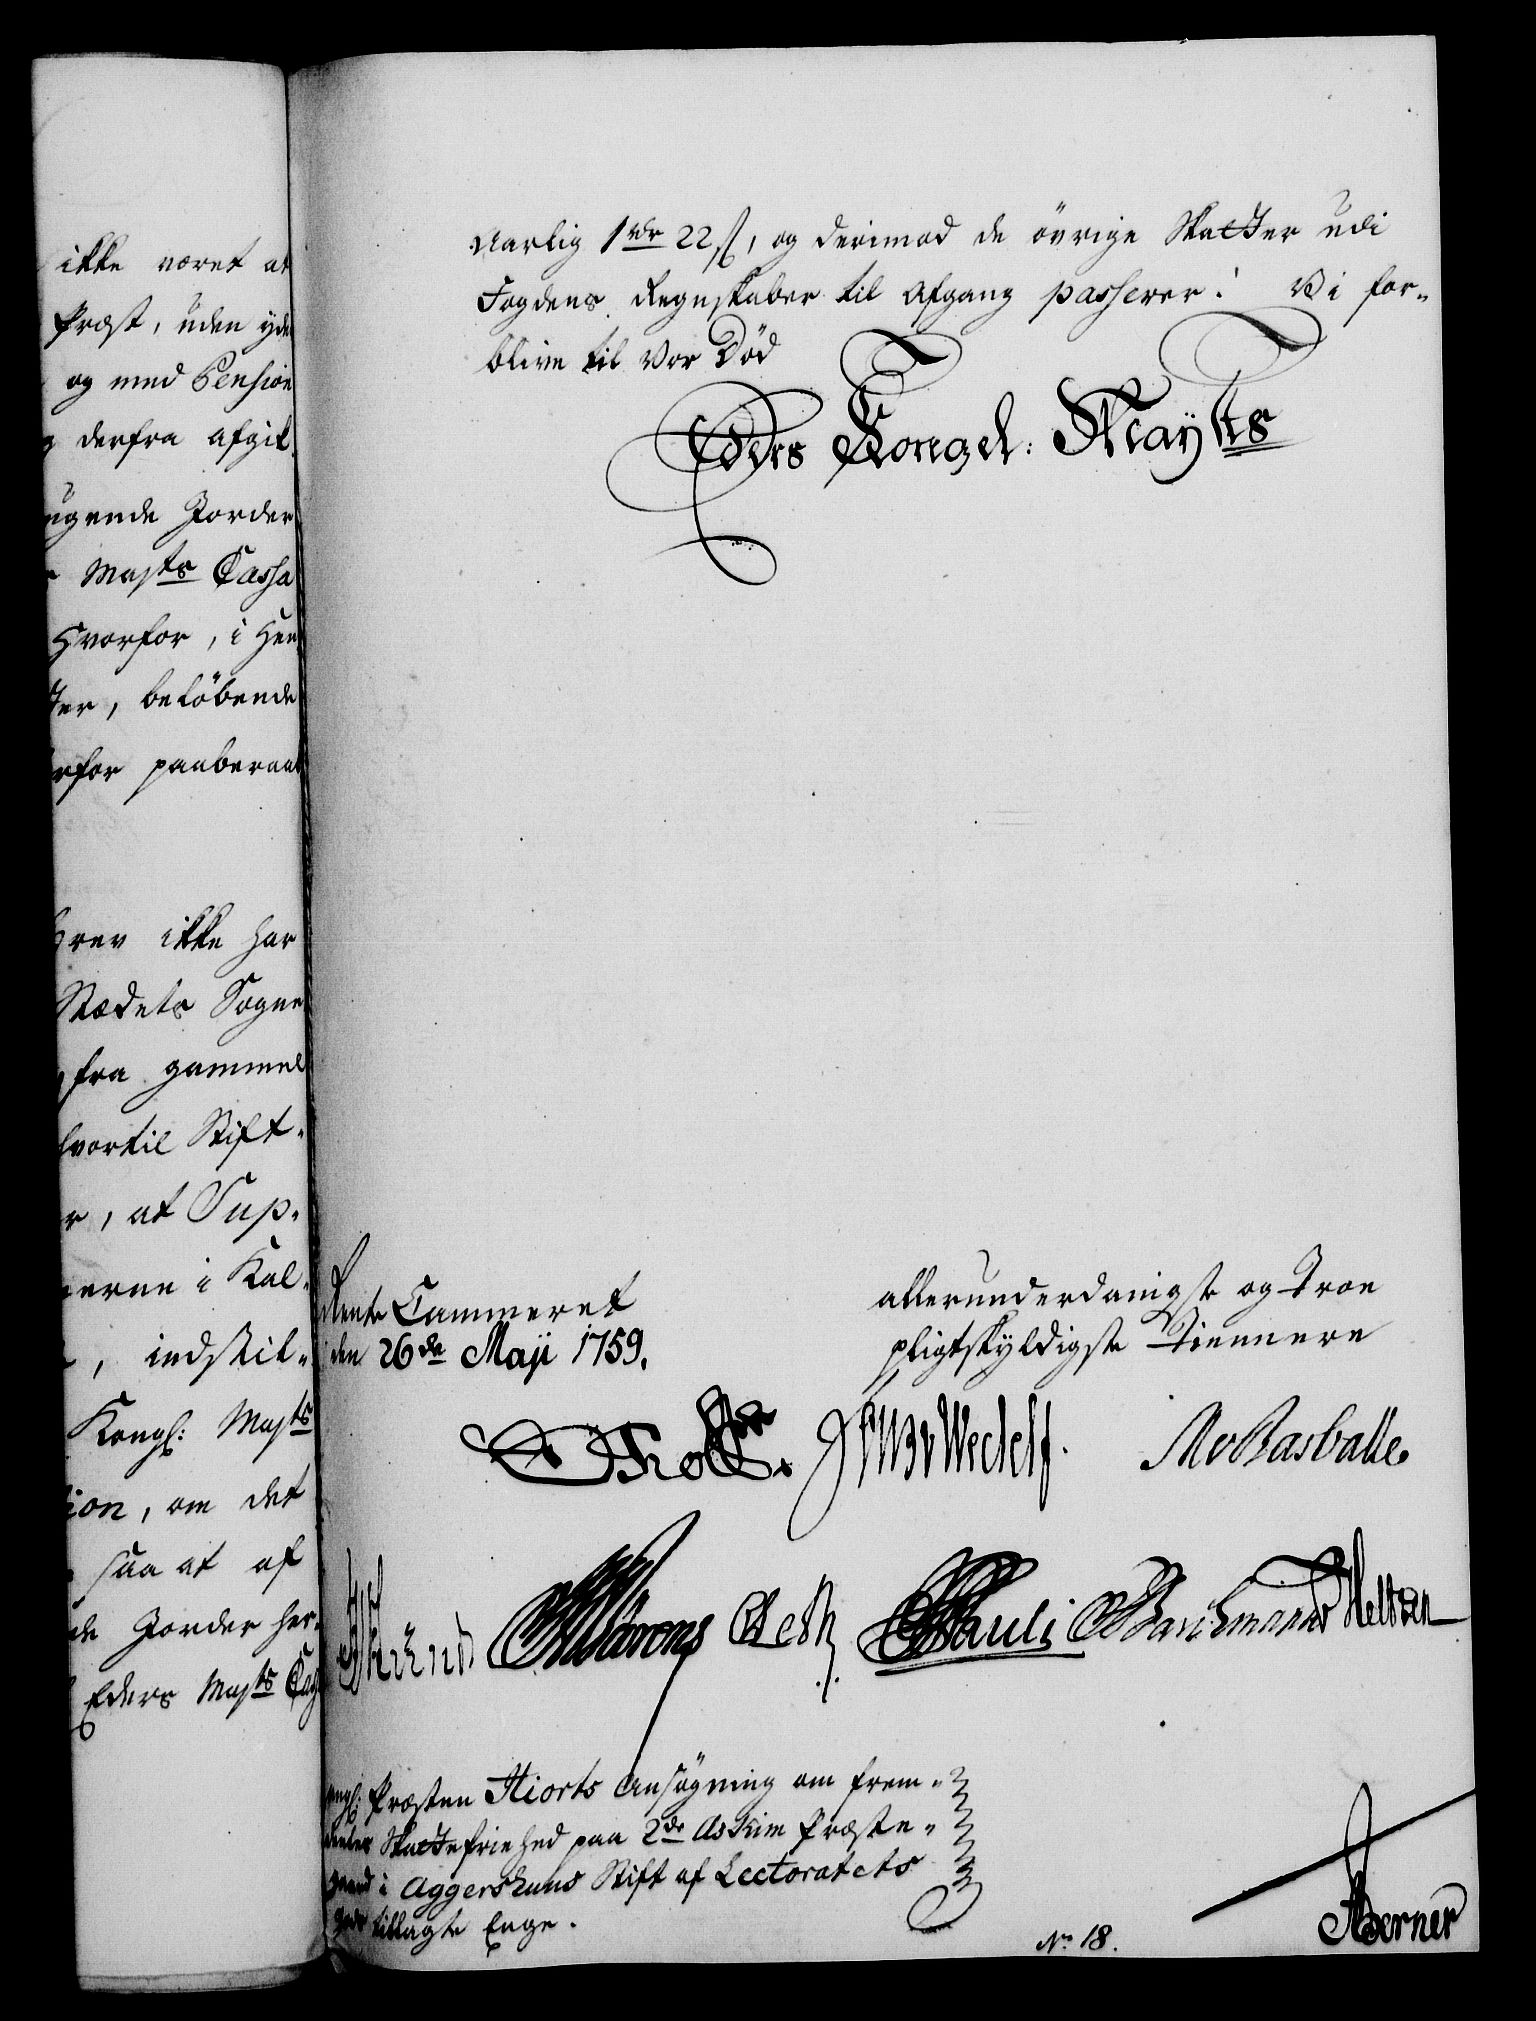 ikke været at
Præst, uden yde
og med Pension
derfra afgik
Jorder
Maj^ts Cassa
Hvorfor, i Hen
ter, beløbende
rfor paaberaab
brev ikke har
Stædets Sogne
fra gammel
hvortil Stift-
r, at Sup-
erne i Kal-
, indstil-
Kongl: Maj^ts
tion, om det
saa at af
de Jorder her-
Eders Maj^ts Cas
Aarlig 1 rdr 22 ß, og derimod de övrige Skatter udi
Fogdens Regnskaber til Afgang passerer! Vi for-
blive til vor Död
Eders Kongel: Mayts
Rente Cammeret
den 26de Maji 1759.
allerunderdanigste og Troe
pligtskyldigste Tiennere
Wedelf.
Pauli
Præsten Hiorts Ansøgning om frem-
deeles Skattefriehed paa 2de Askim Præste-
gaard i Aggershuus Stift af Lectoratets
tillagte Enge.
No 18.
Berner